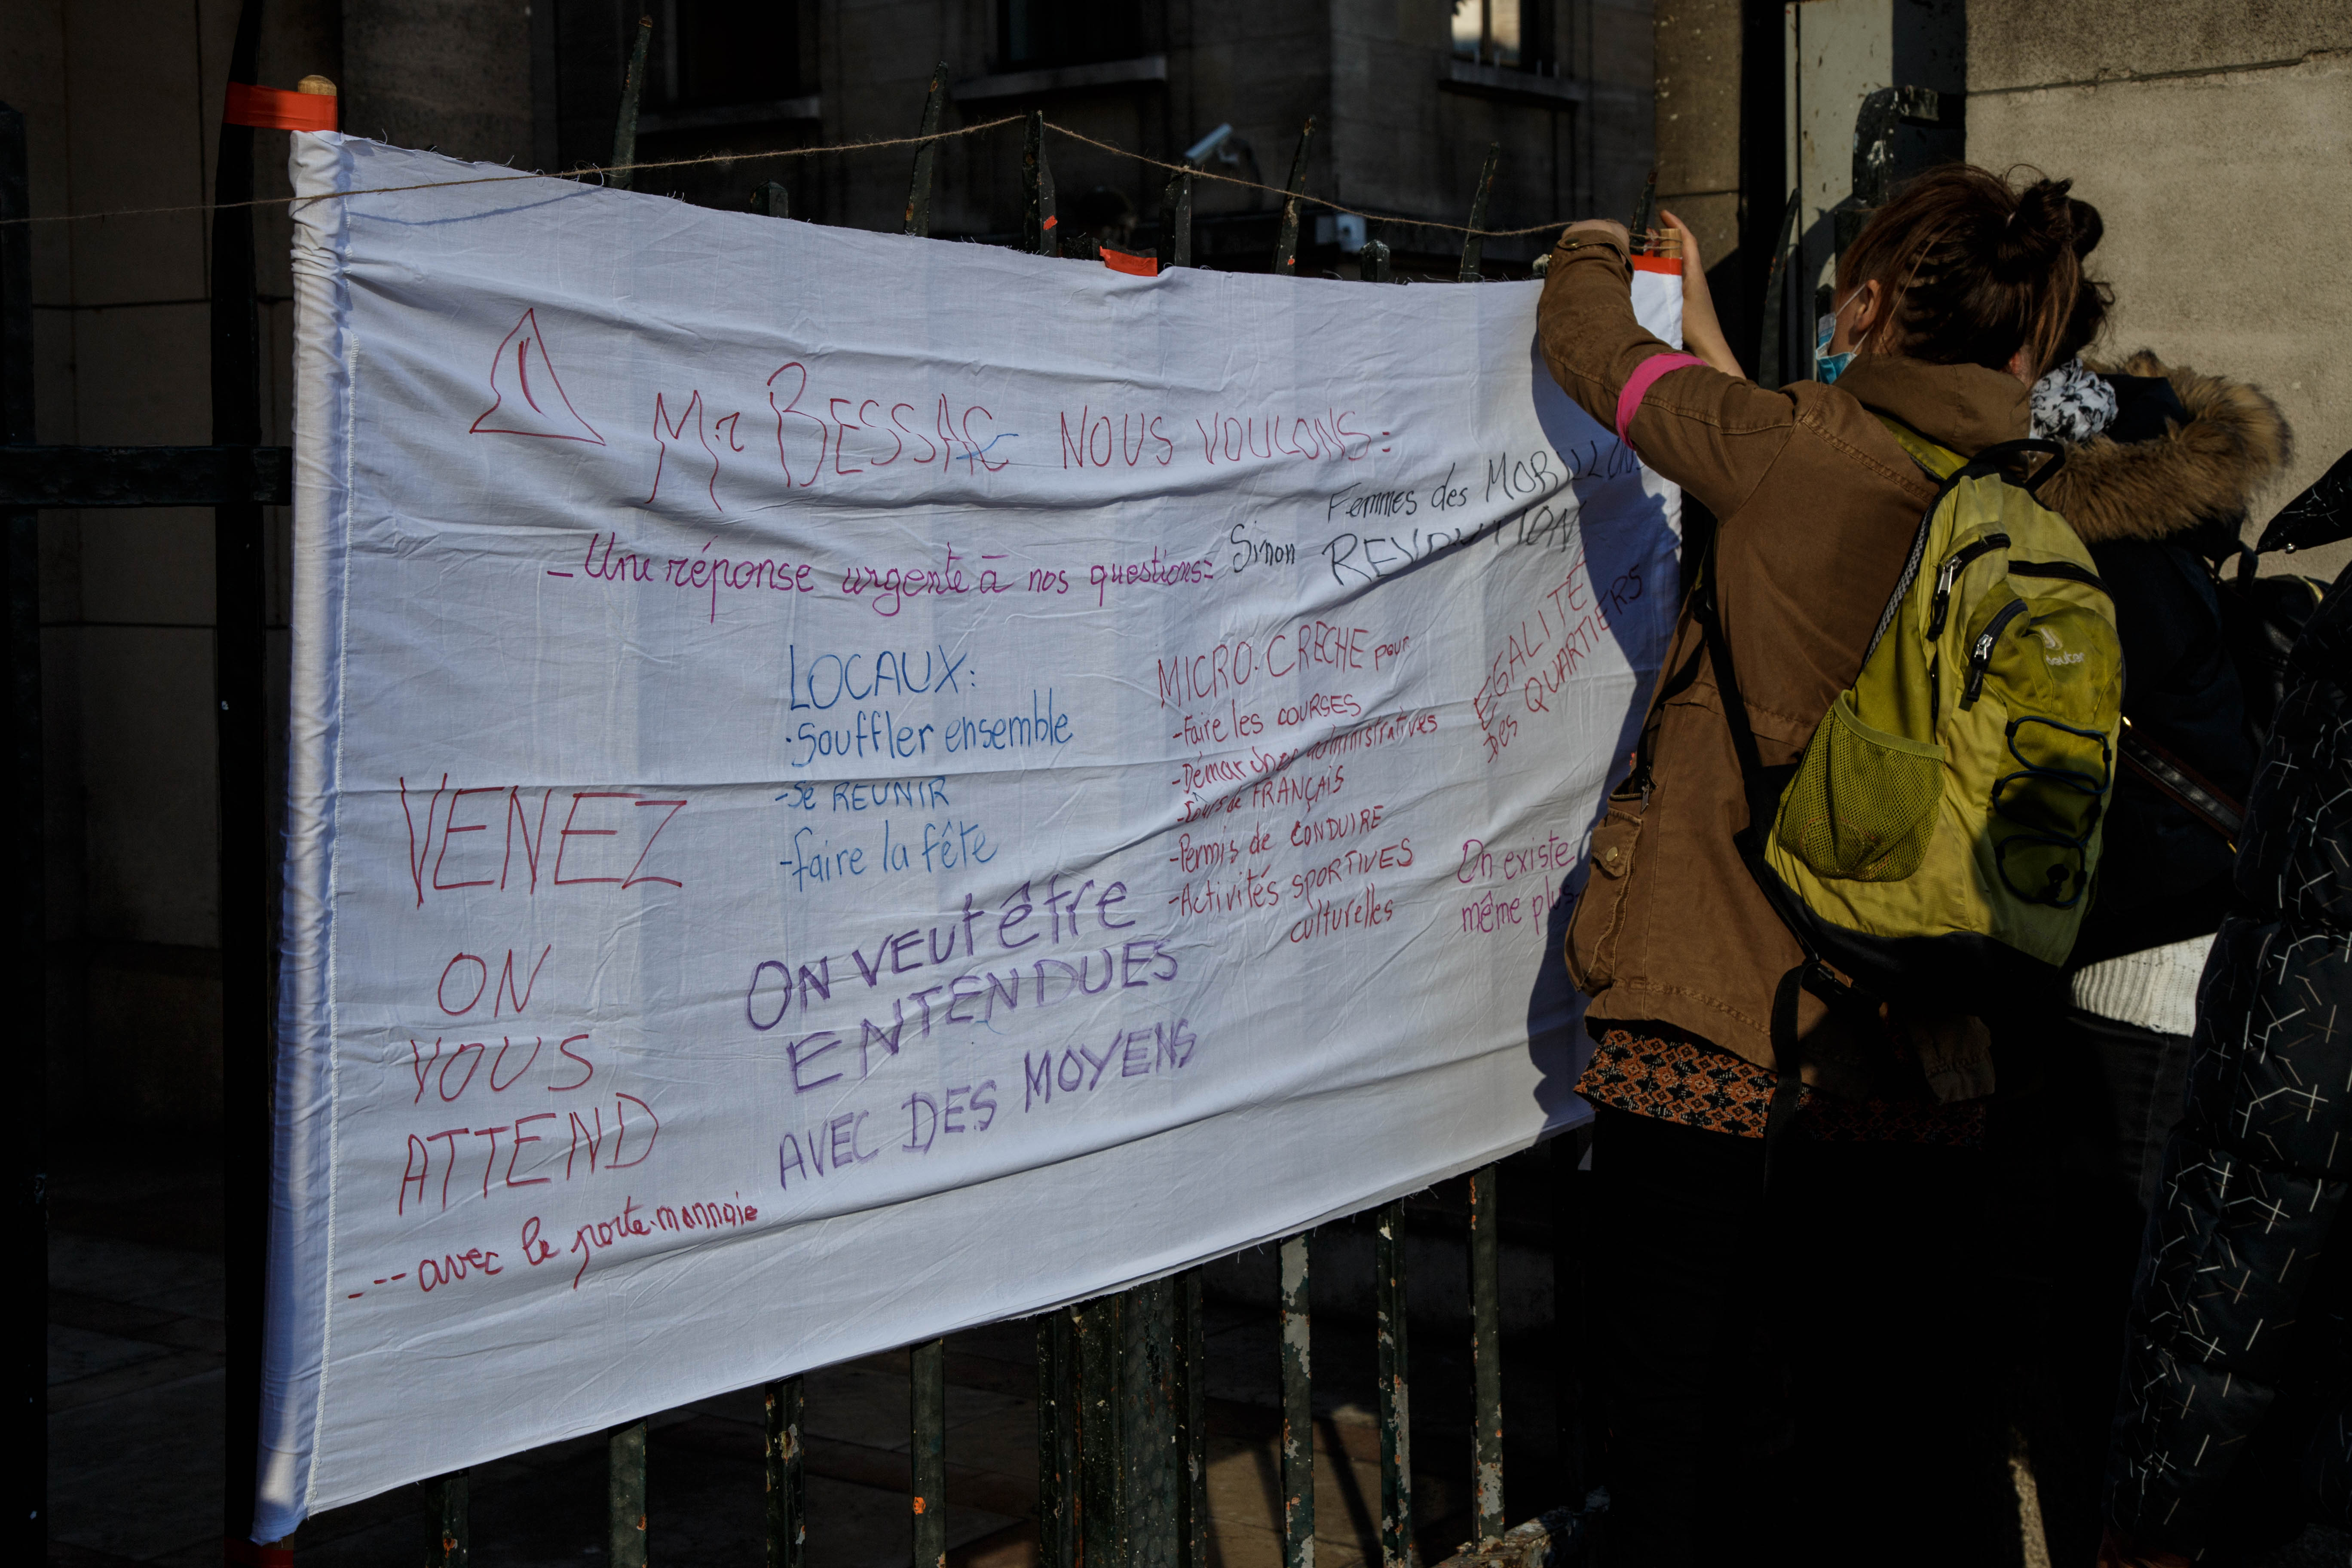 Mr BESSAC NOUS VOULONS:
Femmes des MORILLONS
- Une réponse urgente à nos questions:
Sinon REVOLUTION
LOCAUX:
· Souffler ensemble
- Se REUNIR
- faire la fête
MICRO-CRECHE pour
- Faire les COURSES
- Démarches administratives
- Cours de FRANÇAIS
- Permis de CONDUIRE
- Activités SPORTIVES
culturelles
EGALITE
DES QUARTIERS
On existe
même plus
VENEZ
ON
VOUS
ATTEND
--- avec le porte-monnaie
ON VEUT être
ENTENDUES
AVEC DES MOYENS
deuter